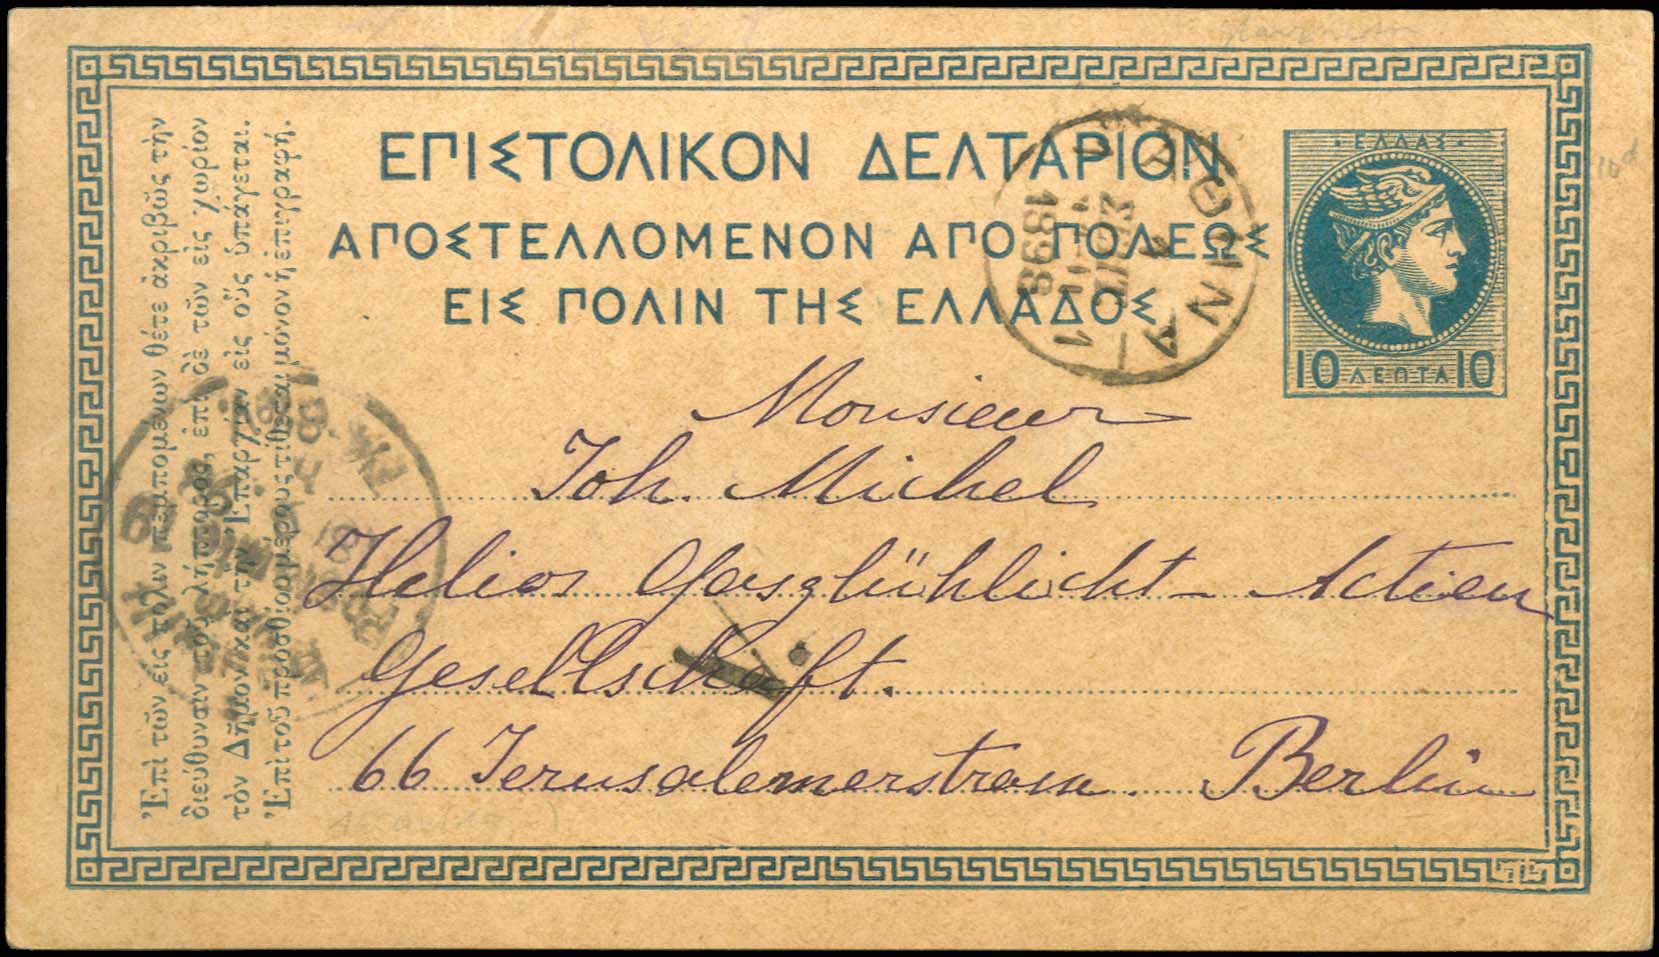 ΕΠΙΣΤΟΛΙΚΟΝ ΔΕΛΤΑΡΙΟΝ
ΑΠΟΣΤΕΛΛΟΜΕΝΟΝ ΑΠΟ ΠΟΛΕΩΣ
ΕΙΣ ΠΟΛΙΝ ΤΗΣ ΕΛΛΑΔΟΣ
·ΕΛΛΑΣ·
10 ΛΕΠΤΑ 10
ΑΘΗΝΑ 1
ΣΕΠΤ.
Monsieur
Joh. Michel
Helios Gasglühlicht - Actien
Gesellschaft.
66 Jerusalemerstrasse. Berlin
Ἐπὶ τῶν εἰς πόλιν πεμπομένων θέτε ἀκριβῶς τὴν
διεύθυνσιν τοῦ λήπτορος, ἐπὶ δὲ τῶν εἰς χωρίον
τὸν Δῆμον καὶ τὴν Ἐπαρχίαν εἰς οὓς ὑπάγεται.
Ἐπὶ τοῦ προσθίου μέρους τίθεται μόνον ἡ ἐπιγραφή.